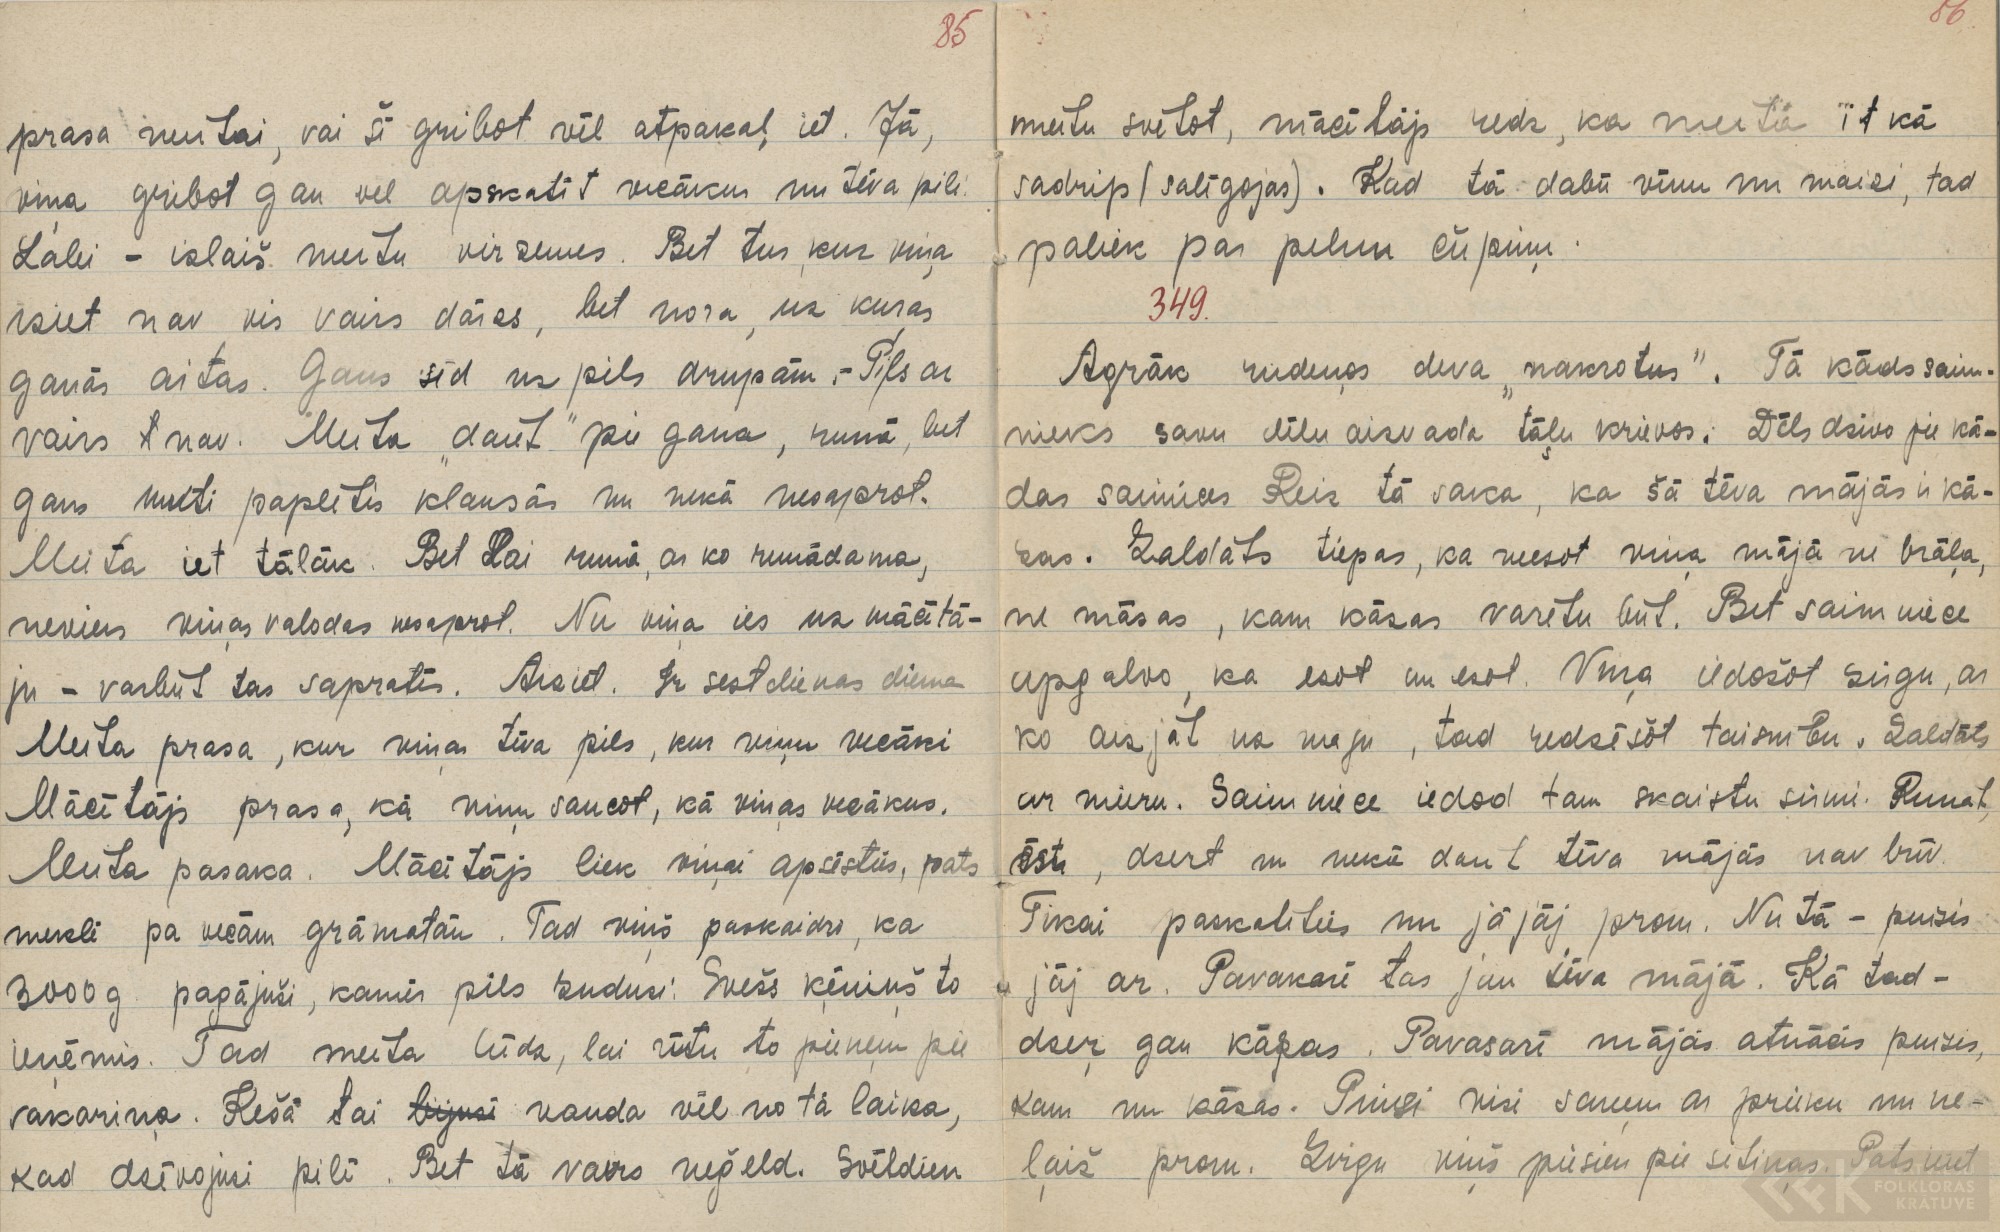 85
prasa meitai, vai šī gribot vēl atpakaļ iet. Jā,
viņa gribot gan vēl apskatīt vecākus un tēva pili.
Labi – izlaiž meitu virszemes. Bet tur, kur viņa
iziet nav vis vairs dārzs, bet nora, uz kuras
ganās aitas. Gans sīd uz pils drupām. – Pils ar
vairs nav. Meita „daiet" pie gana, runā, bet
gans muti papletis klausās un nekā nesaprot.
Meita iet tālāk. Bet lai runā, ar ko runādama,
neviens viņas valodas nesaprot. Nu viņa ies uz mācītā-
ju – varbūt tas sapratīs. Aiziet. Ir sestdienas diena
Meita prasa, kur viņas tēva pils, kur viņu vecāki
Mācītājs prasa, kā viņu saucot, kā viņas vecākus.
Meita pasaka. Mācītājs liek viņai apsēsties, pats
meklē pa vecām grāmatām. Tad viņš paskaidro, ka
3000 g. pagājuši, kamēr pils zudusi. Svešs ķēniņš to
ieņēmis. Tad meita lūdz, lai rītu to pieņem pie
sakariņa. Ķešā tai bijusi nauda vēl no tā laika,
kad dzīvojusi pilī. Bet tā vairs neģeld. Svētdien
86
meitu svētot, mācītājs redz, ka meita it kā
sadrip (salīgojas). Kad tā dabū vīnu un maizi, tad
paliek par pelnu čupiņu.
349.
Agrāk rudeņos deva „nakrotus". Tā kāds saim-
nieks savu dēlu aizvada tāļu krievos. Dēls dzīvo pie kā-
das saimices Reiz tā saka, ka šā tēva mājās ir kā-
zas. Zaldāts tiepas, ka neesot viņa mājā ne brāļa,
ne māsas, kam kāzas varētu būt. Bet saimniece
apgalvo, ka esot un esot. Viņa iedošot zirgu, ar
ko aizjāt uz māju, tad redzēšot taisnību. Zaldāts
ar mieru. Saimniece iedod tam skaistu sirmi. Runāt,
ēstu, dzert un nekā daut tēva mājās nav brīv.
Tikai paskatīties un jā jāj prom. Nu tā – puisis
jāj ar. Pavakarē tas jau tēva mājā. Kā tad –
dzeŗ gan kāzas. Pavasarī mājās atnācis puisis,
kam nu kāzas. Priņģi visi saņem ar prieku un ne-
laiž prom. Zirgu viņš piesien pie sētiņas. Pats ieiet